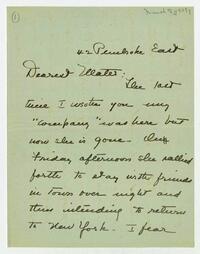 ①
42 Pembroke East
Dearest Mater:
The last
time I wrote you my
"company" was here but
now she is gone.
Friday afternoon she sallied
forth to stay with friends
in town over night and
thus intending to return
to New York. I fear